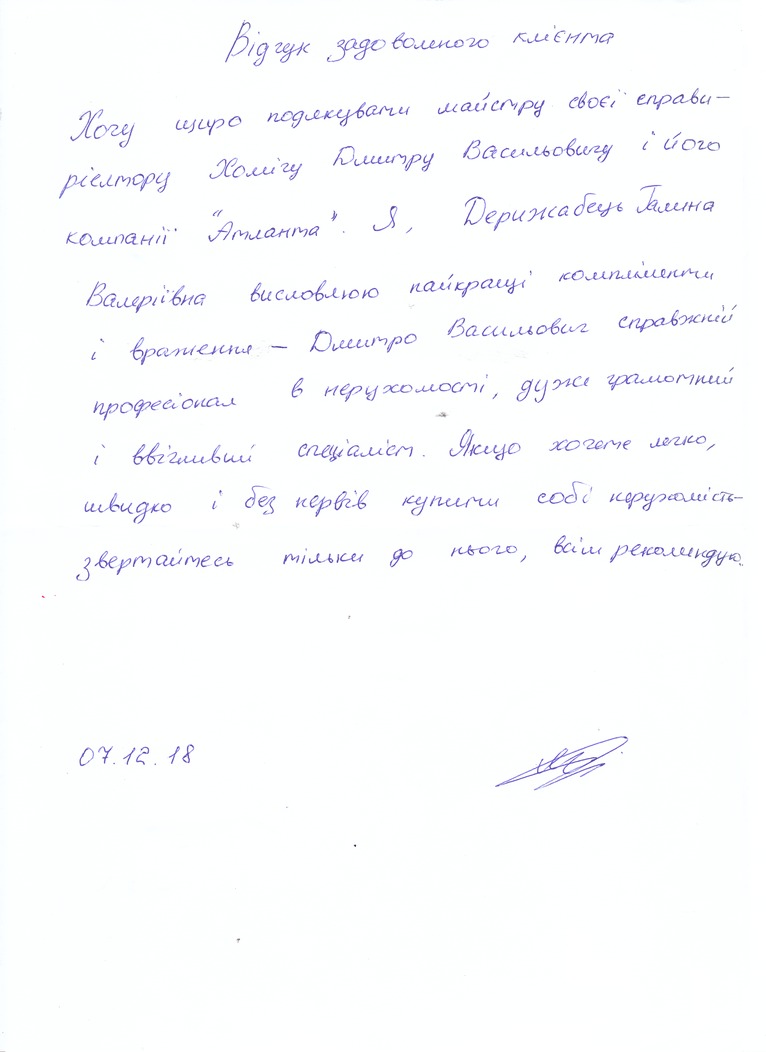 Відгук задоволеного клієнта
Хочу щиро подякувати майстру своєї справи –
рієлтору Хомічу Дмитру Васильовичу і його
компанії "Атланта". Я, Держабець Галина
Валеріївна висловлюю найкращі компліменти
і враження – Дмитро Васильович справжній
професіонал в нерухомості, дуже грамотний
і ввічливий спеціаліст. Якщо хочете легко,
швидко і без нервів купити собі нерухомість –
звертайтесь тільки до нього, всім рекомендую.
07.12.18